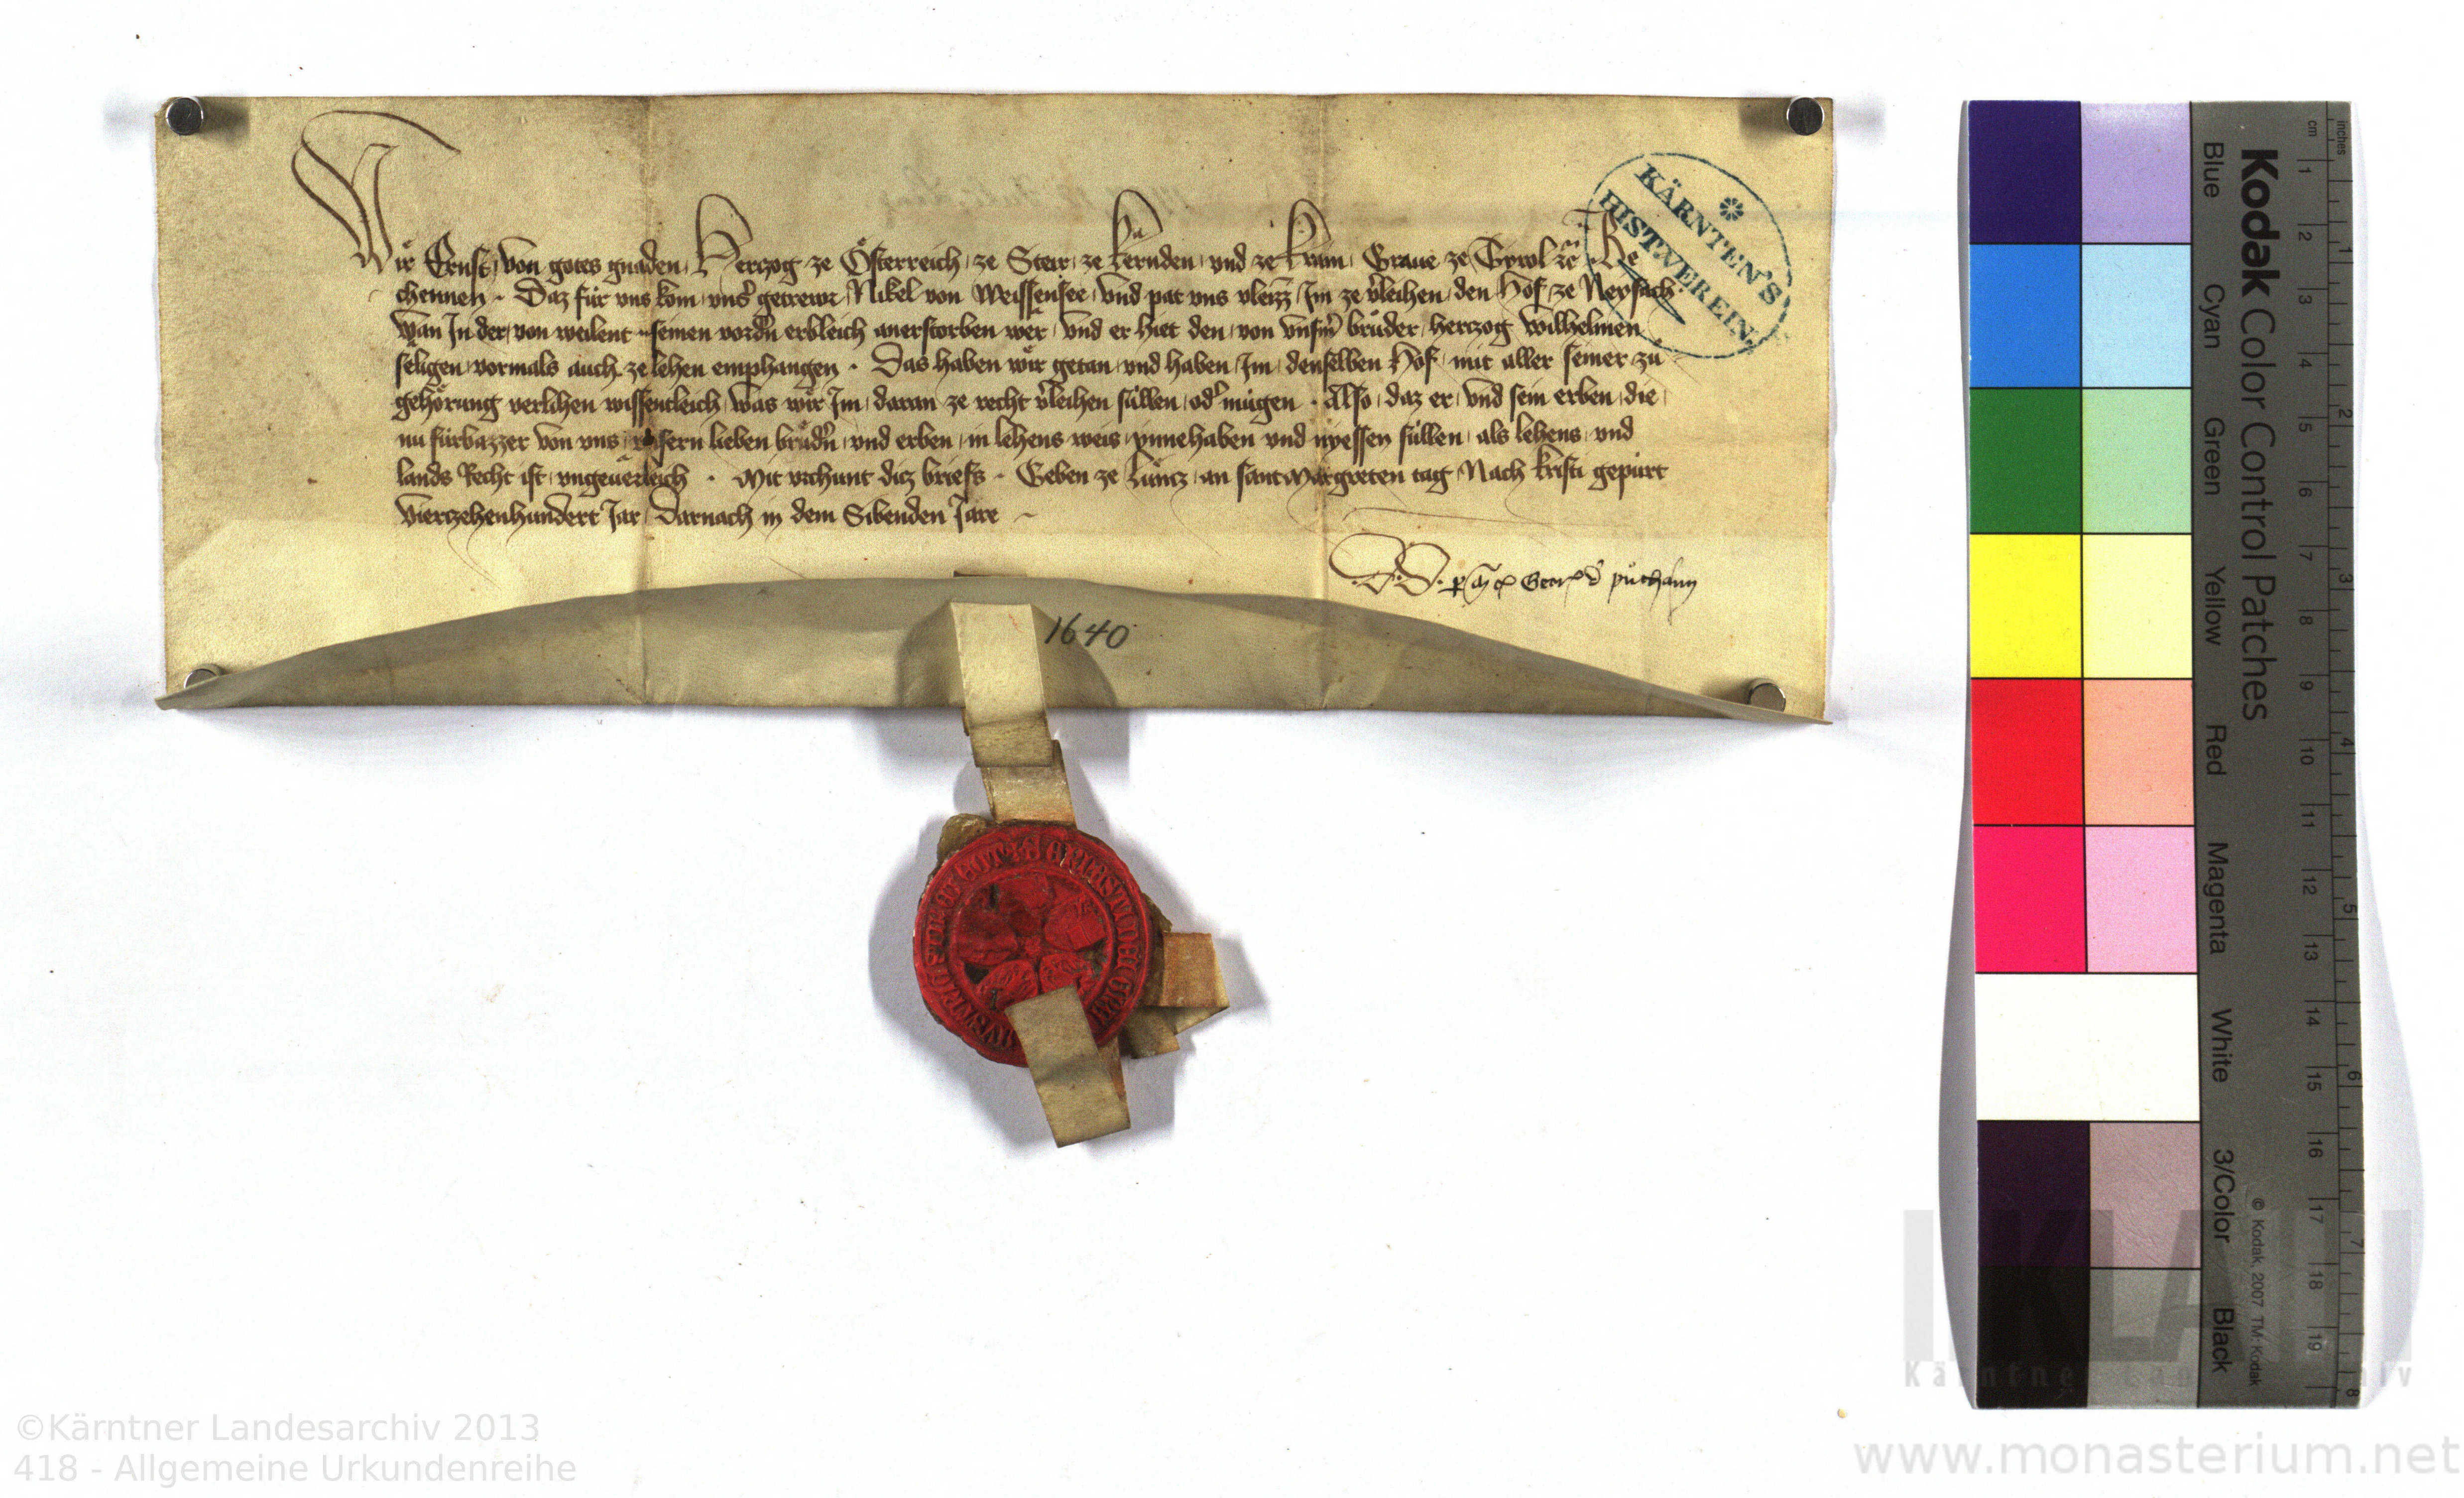 Wir Ernst von gotes gnaden Herczog ze Österreich ze Steir ze Kernden und ze Krain Graue ze Tyrol etc̃ Be
chennen · Daz für vns kom vnsˀ getrewr Nikel von Weissensee vnd pat vns vleizz Im ze vˀleihen den Hof ze Neysach
wan In der von weilent seinen vordˀn erbleich anerstorben wer vnd er hiet den von vnsm̃ brůder herczog Wilhelmen
seligen vormals auch ze lehen emphangen · Das haben wir getan vnd haben Im denselben Hof mit aller seiner zů
gehörung verlihen wissentleich was wir Im daran ze recht vˀleihen süllen odˀ mügen · Also daz er vnd sein erben die
nu fürbazzer von vns vnsern lieben brüdˀn vnd erben in lehens weis ynnehaben vnd nyessen süllen als lehens vnd
lands Recht ist vngeuerleich · Mit vrchunt dicz briefs · Geben ze Lüncz an sant Margreten tag Nach kristi gepürt
Vierczehenhundert Jar Darnach in dem Sibenden Jare
D. D. p m c Geor d püchaim
1640
KÄRNTEN'S
HIST.VEREIN.
Kodak Color Control Patches
Blue Cyan Green Yellow Red Magenta White 3/Color Black
© Kodak, 2007 TM: Kodak
inches
cm
1 2 3 4 5 6 7 8 9 10 11 12 13 14 15 16 17 18 19
1 2 3 4 5 6 7 8
KLA
Kärntner Landesarchiv
©Kärntner Landesarchiv 2013
418 - Allgemeine Urkundenreihe
www.monasterium.net